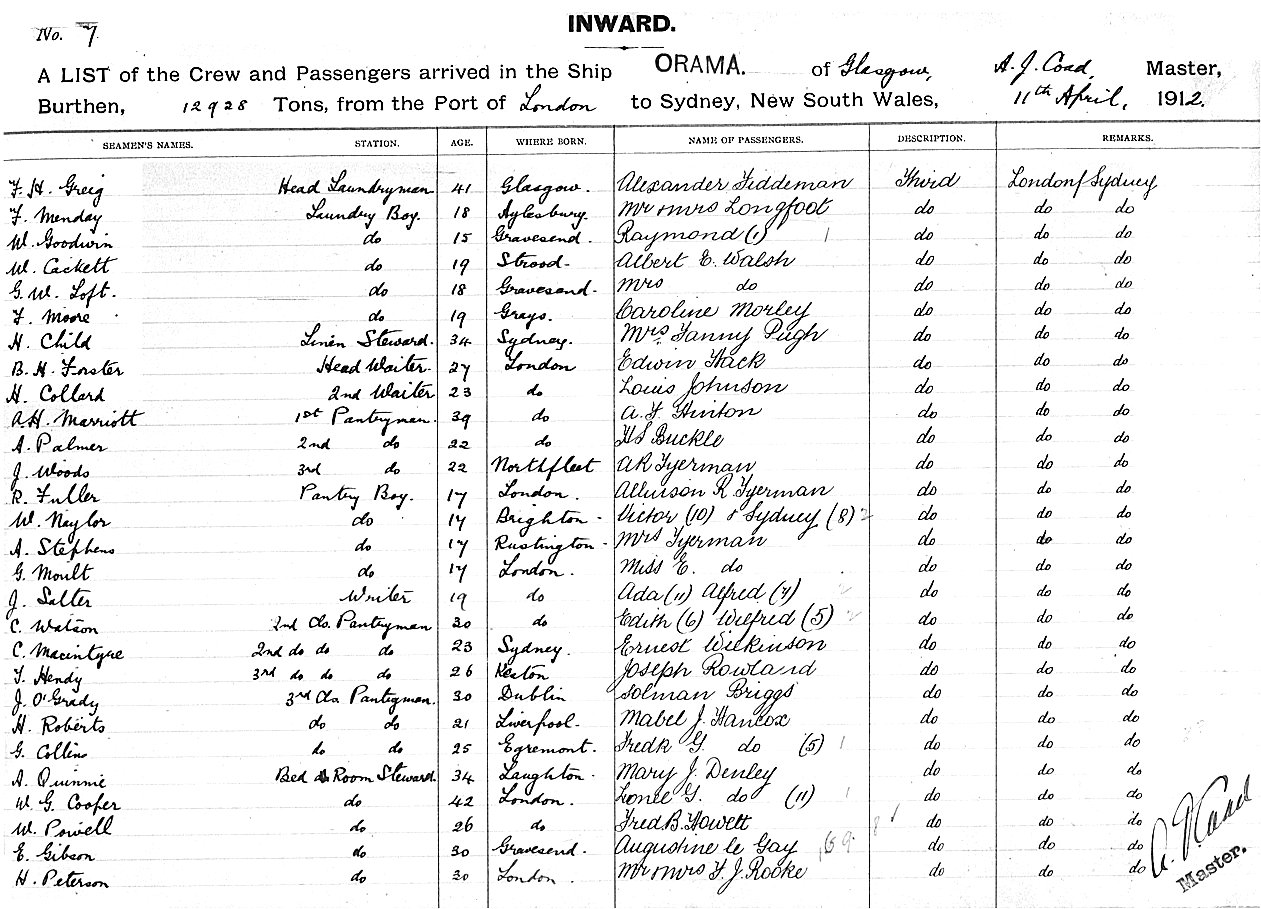 No. 7
INWARD.
A LIST of the Crew and Passengers arrived in the Ship ORAMA. of Glasgow, A. J. Coad, Master,
Burthen, 12928 Tons, from the Port of London to Sydney, New South Wales, 11th April, 1912.
SEAMEN'S NAMES. STATION. AGE. WHERE BORN. NAME OF PASSENGERS. DESCRIPTION. REMARKS.
F. H. Greig Head Laundryman 41 Glasgow. Alexander Fiddeman Third London/Sydney
F. Menday Laundry Boy. 18 Aylesbury. Mr & Mrs Longfoot do do do
W. Goodwin do 15 Gravesend. Raymond (1) 1 do do do
W. Cackett do 19 Strood. Albert E. Walsh do do do
G. W. Loft. do 18 Gravesend. Mrs do do do do
F. Moore do 19 Grays. Caroline Morley do do do
H. Child Linen Steward. 34 Sydney. Mrs. Fanny Pugh do do do
B. H. Forster Head Waiter. 27 London Edwin Hack do do do
H. Collard 2nd Waiter 23 do Louis Johnson do do do
A.H. Marriott 1st Pantryman. 39 do A. F. Hinton do do do
A. Palmer 2nd do 22 do HS Buckle do do do
J. Woods 3rd do 22 Northfleet AR Tyerman do do do
R. Fuller Pantry Boy. 17 London. Allinson R Tyerman do do do
W. Naylor do 17 Brighton. Victor (10) & Sydney (8) 2 do do do
A. Stephens do 17 Rustington. Mrs Tyerman do do do
G. Moult do 17 London. Miss E. do do do do
J. Salter Writer 19 do Ada (11) Alfred (7) 2 do do do
C. Watson 2nd Cla. Pantryman 30 do Edith (6) Wilfred (5) 2 do do do
C. Macintyre 2nd do do do 23 Sydney. Ernest Wilkinson do do do
F. Hendy 3rd do do do 26 Keston Joseph Rowland do do do
J. O'Grady 3rd Cla. Pantryman. 30 Dublin Solman Briggs do do do
H. Roberts do do 21 Liverpool. Mabel J. Hancox do do do
G. Collins do do 25 Egremont. Fredk G. do (5) 1 do do do
A. Quinnie Bed Room Steward. 34 Laughton. Mary J. Denley do do do
W. G. Cooper do 42 London. Lionel G. do (11) 1 do do do
W. Powell do 26 do Fred. B. Howett do do do
E. Gibson do 30 Gravesend. Augustine le Gay do do do
H. Peterson do 30 London. Mr & Mrs F. J. Rooke do do do
A. J. Coad
Master.